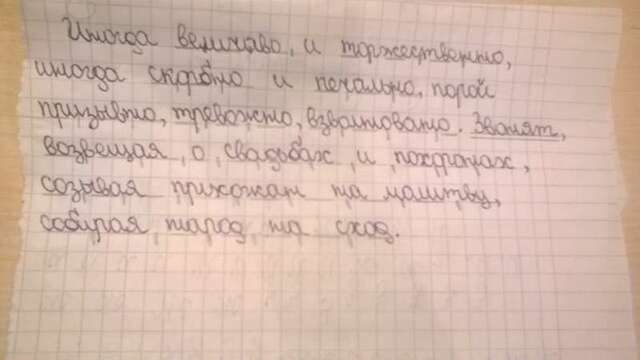 Иногда величаво, и торжественно,
иногда скорбно и печально, порой
призывно, тревожно, взволновано. Звонят,
возвещая, о, свадьбах, и похоронах,
созывая прихожан на молитву,
собирая, народ, на сход.